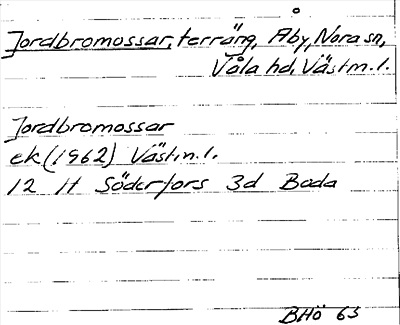 Jordbromossar, terräng, Åby, Nora sn,
Våla hd, Västm.l.
Jordbromossar
ek (1962) Västm.l.
12 H Söderfors 3d Boda
BHö 63